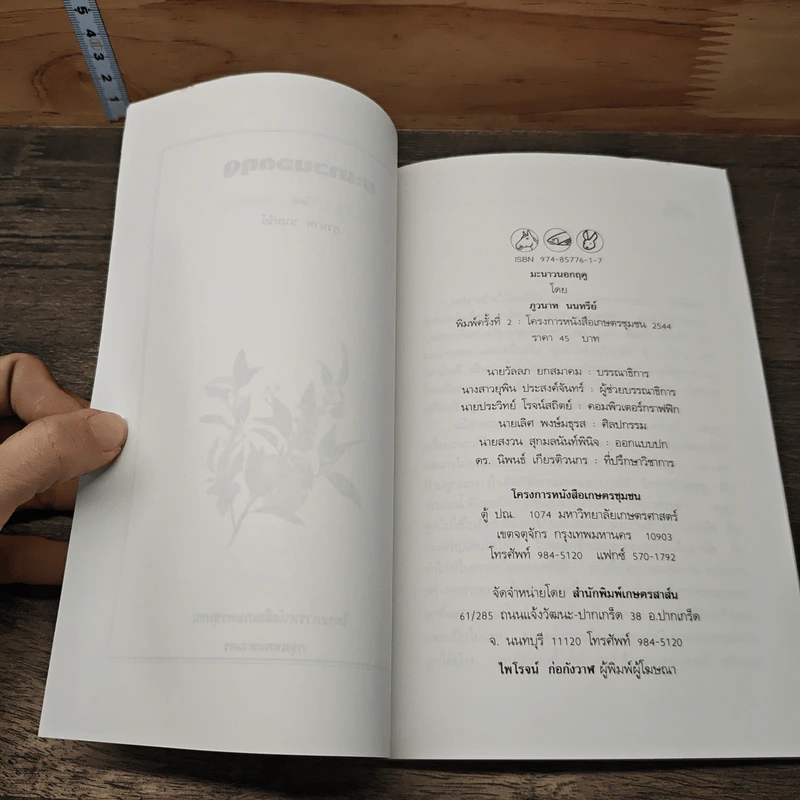 5 4 3 2 1
ISBN 974-85776-1-7
มะนาวนอกฤดู
โดย
ภูวนาท นนทรีย์
พิมพ์ครั้งที่ 2 : โครงการหนังสือเกษตรชุมชน 2544
ราคา 45 บาท
นายวัลลภ ยกสมาคม : บรรณาธิการ
นางสาวยุพิน ประสงค์จันทร์ : ผู้ช่วยบรรณาธิการ
นายประวิทย์ โรจน์สถิตย์ : คอมพิวเตอร์กราฟฟิก
นายเลิศ พงษ์มธุรส : ศิลปกรรม
นายสงวน สุกมลนันท์พินิจ : ออกแบบปก
ดร. นิพนธ์ เกียรติวนกร : ที่ปรึกษาวิชาการ
โครงการหนังสือเกษตรชุมชน
ตู้ ปณ. 1074 มหาวิทยาลัยเกษตรศาสตร์
เขตจตุจักร กรุงเทพมหานคร 10903
โทรศัพท์ 984-5120 แฟกซ์ 570-1792
จัดจำหน่ายโดย สำนักพิมพ์เกษตรสาส์น
61/285 ถนนแจ้งวัฒนะ-ปากเกร็ด 38 อ.ปากเกร็ด
จ. นนทบุรี 11120 โทรศัพท์ 984-5120
ไพโรจน์ ก่อกังวาฬ ผู้พิมพ์ผู้โฆษณา